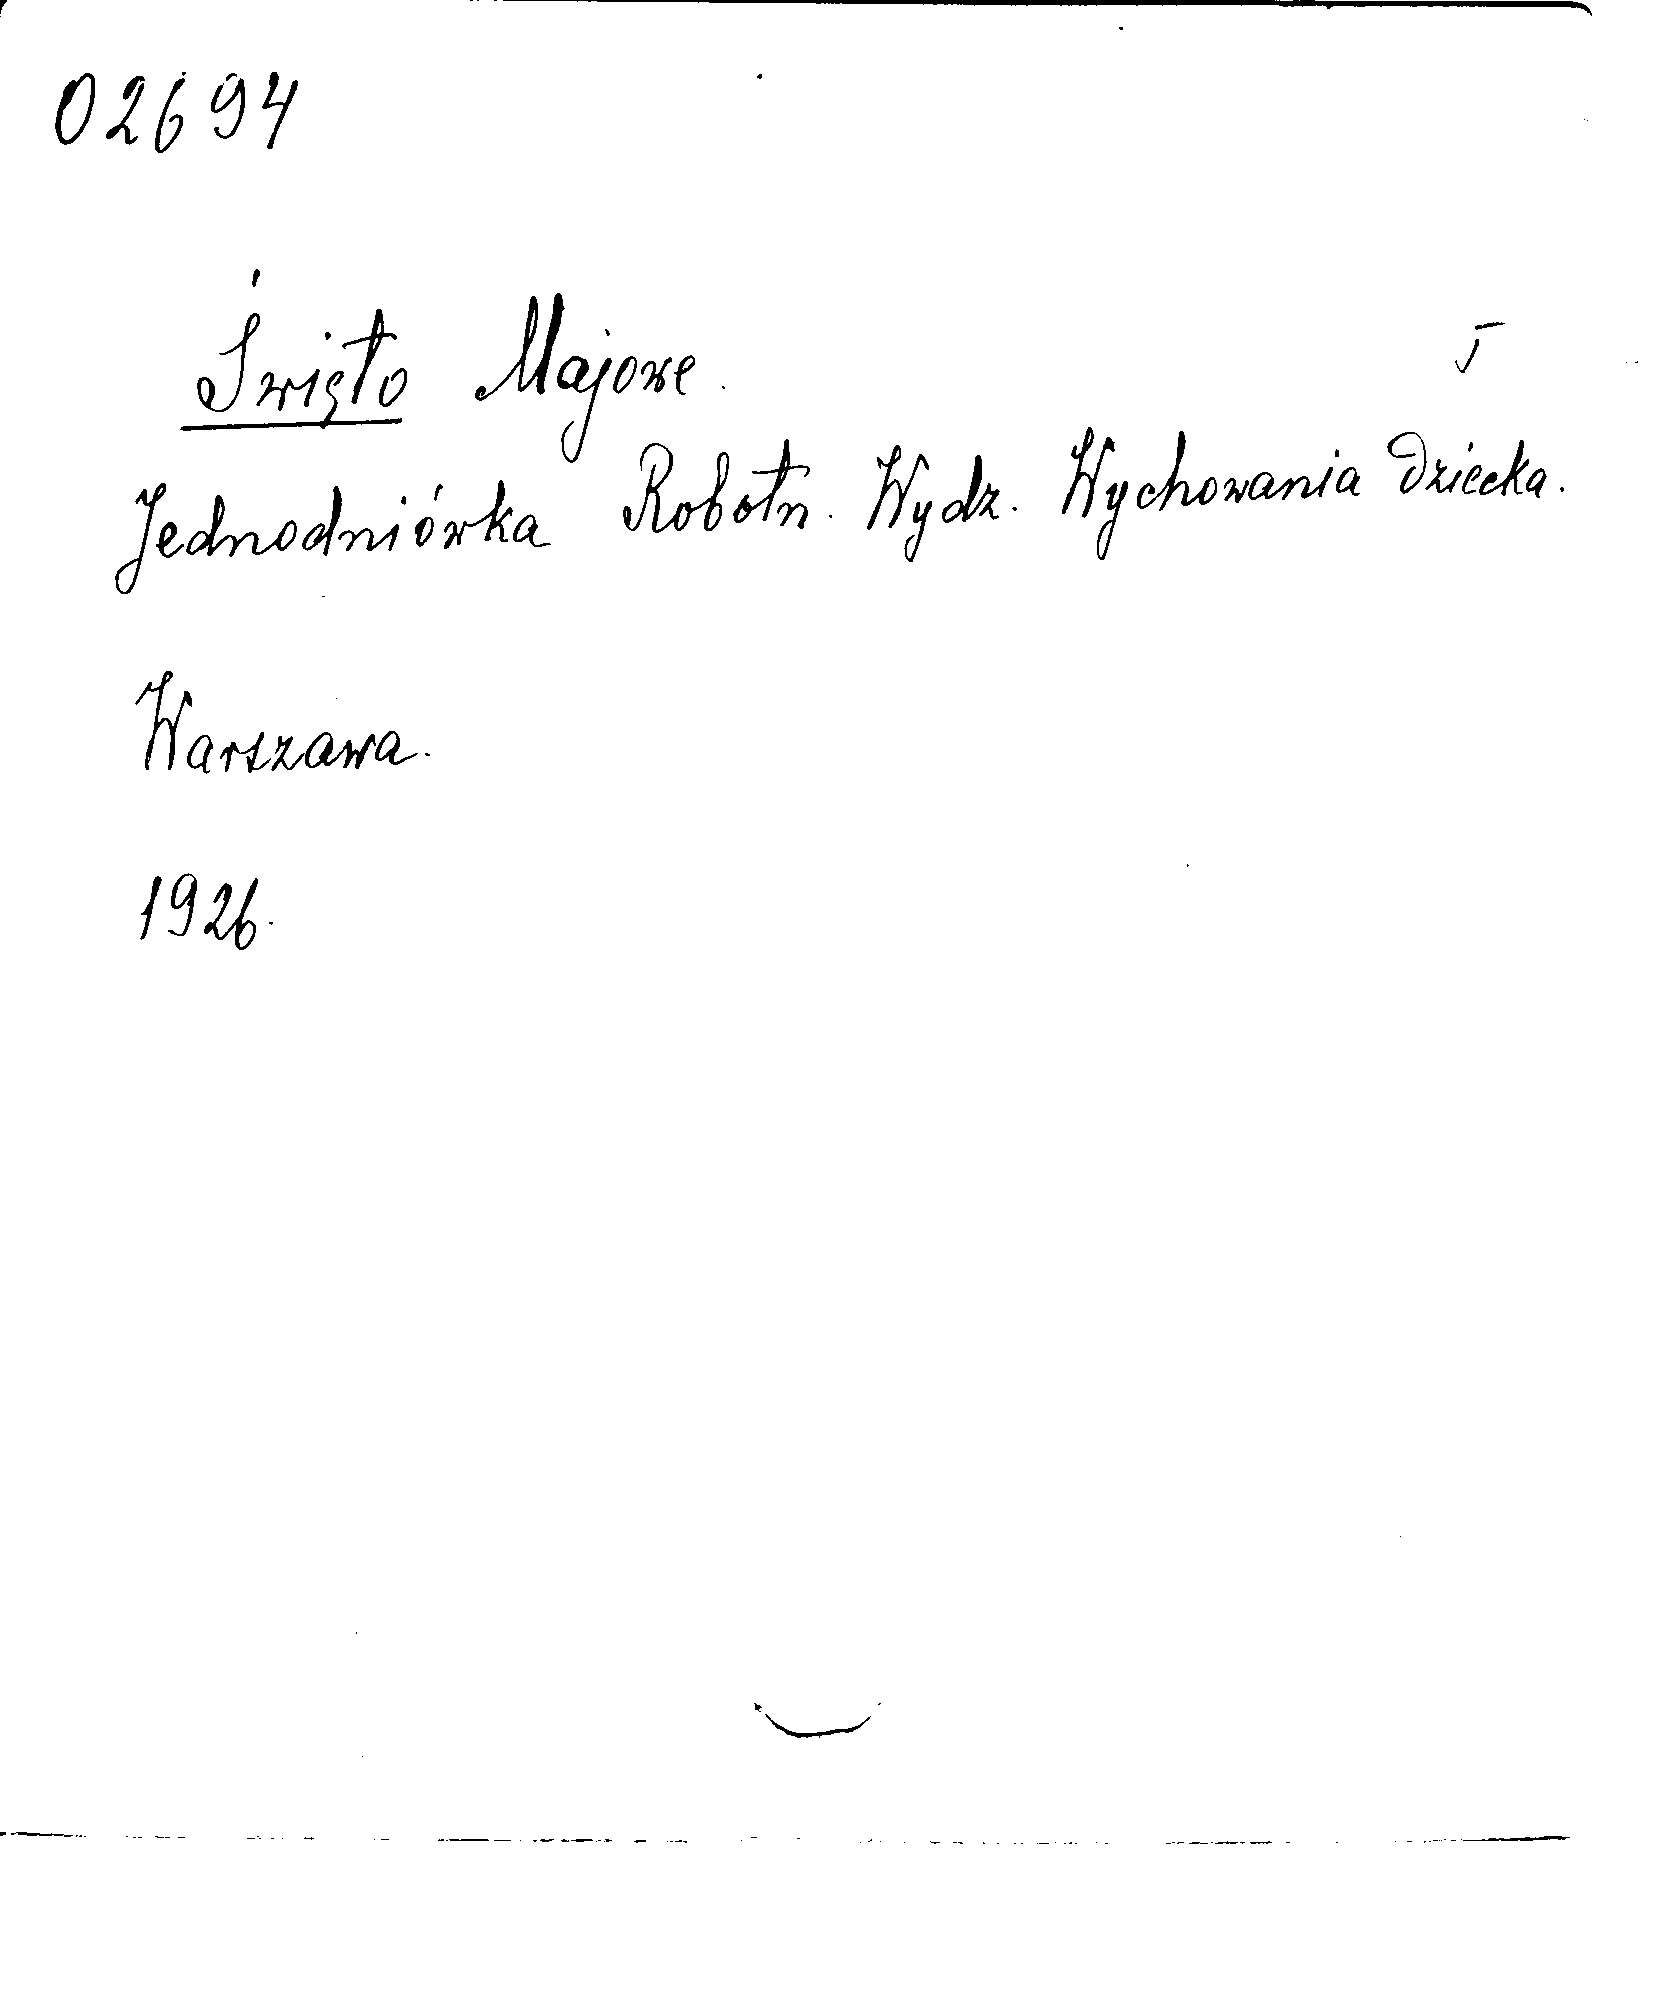 02694
Święto Majowe.
Jednodniówka Robotn. Wydz. Wychowania Dziecka.
Warszawa.
1926.